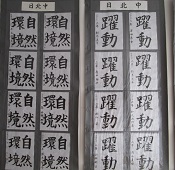 日北中
自然
環境
自然
環境
自然
環境
自然
環境
自然
環境
自然
環境
自然
環境
自然
環境
日北中
躍動
躍動
躍動
躍動
躍動
躍動
躍動
躍動